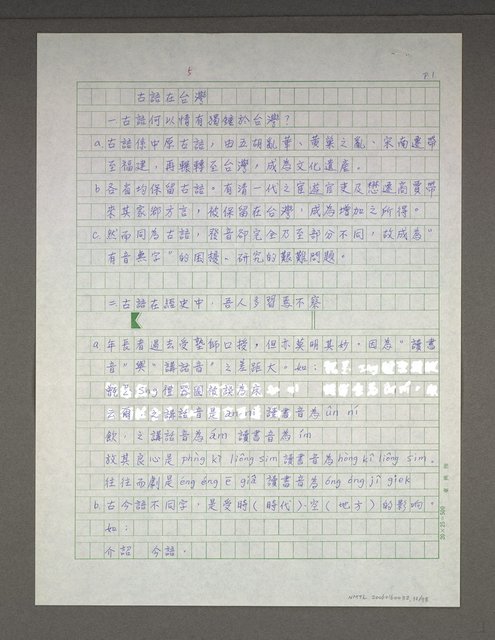 5
P.1
古語在台灣
一古語何以情有獨鍾於台灣？
a.古語係中原古語，由五胡亂華、黃巢之亂、宋南遷帶
至福建，再輾轉至台灣，成為文化遺產。
b.各省均保留古語。有清一代之宦遊官吏及戀遷商賈帶
來其家鄉方言，被保留在台灣，成為增加之所得。
c.然而同為古語，發音卻完全乃至部分不同，故成為"
有音無字"的困擾、研究的艱難問題。
二古語在歷史中，吾人多習焉不察
a.年長者過去受塾師口授，但亦莫明其妙，因為"讀書
音"與"講話音"之差距大。如：
之講話音是 讀書音為ûn ní
飲，之講話音為ám 讀書音為ím
故其良心是phòng kî liông sim讀書音為hòng kî liông sim。
往往而劇是óng óng ē giâ 讀書音為óng óng jî giek
b.古今語不同字，是受時(時代)、空(地方)的影响。
如：
介紹 今語。
20×25=500